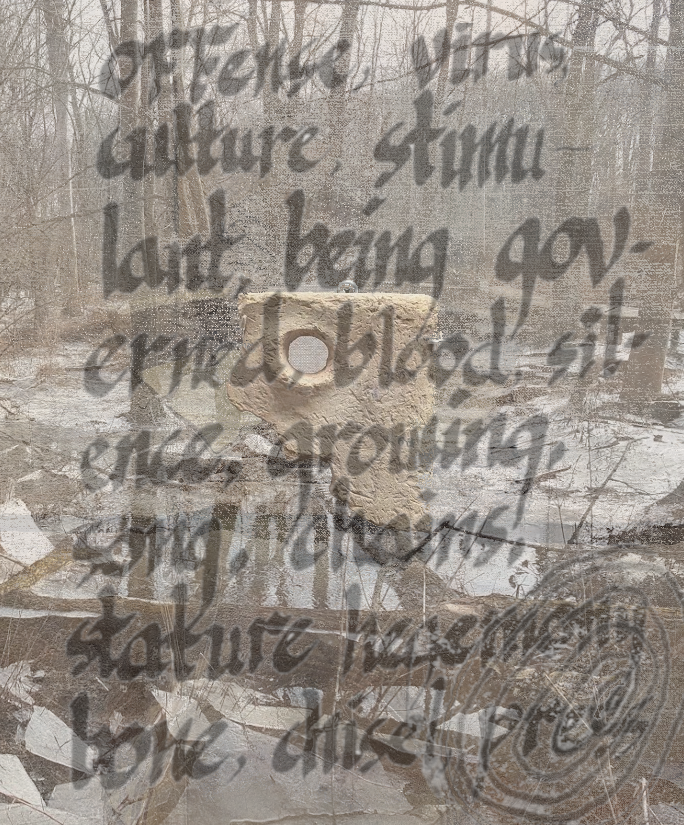 offense, virus,
culture, stimu-
lant, being gov-
erned, blood, sil-
ence, growing,
song, chains,
stature hegemony
bone, chisel